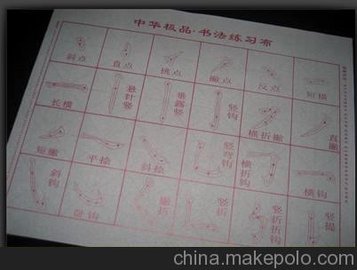 中华极品·书法练习布
斜点 直点 挑点 撇点 反点 短横
长横 悬针竖 垂露竖 竖钩 横折撇 直撇
短撇 平捺 斜捺 竖弯钩 横折钩 横钩
斜钩 卧钩 撇折 竖折折钩 竖提
china.makepolo.com